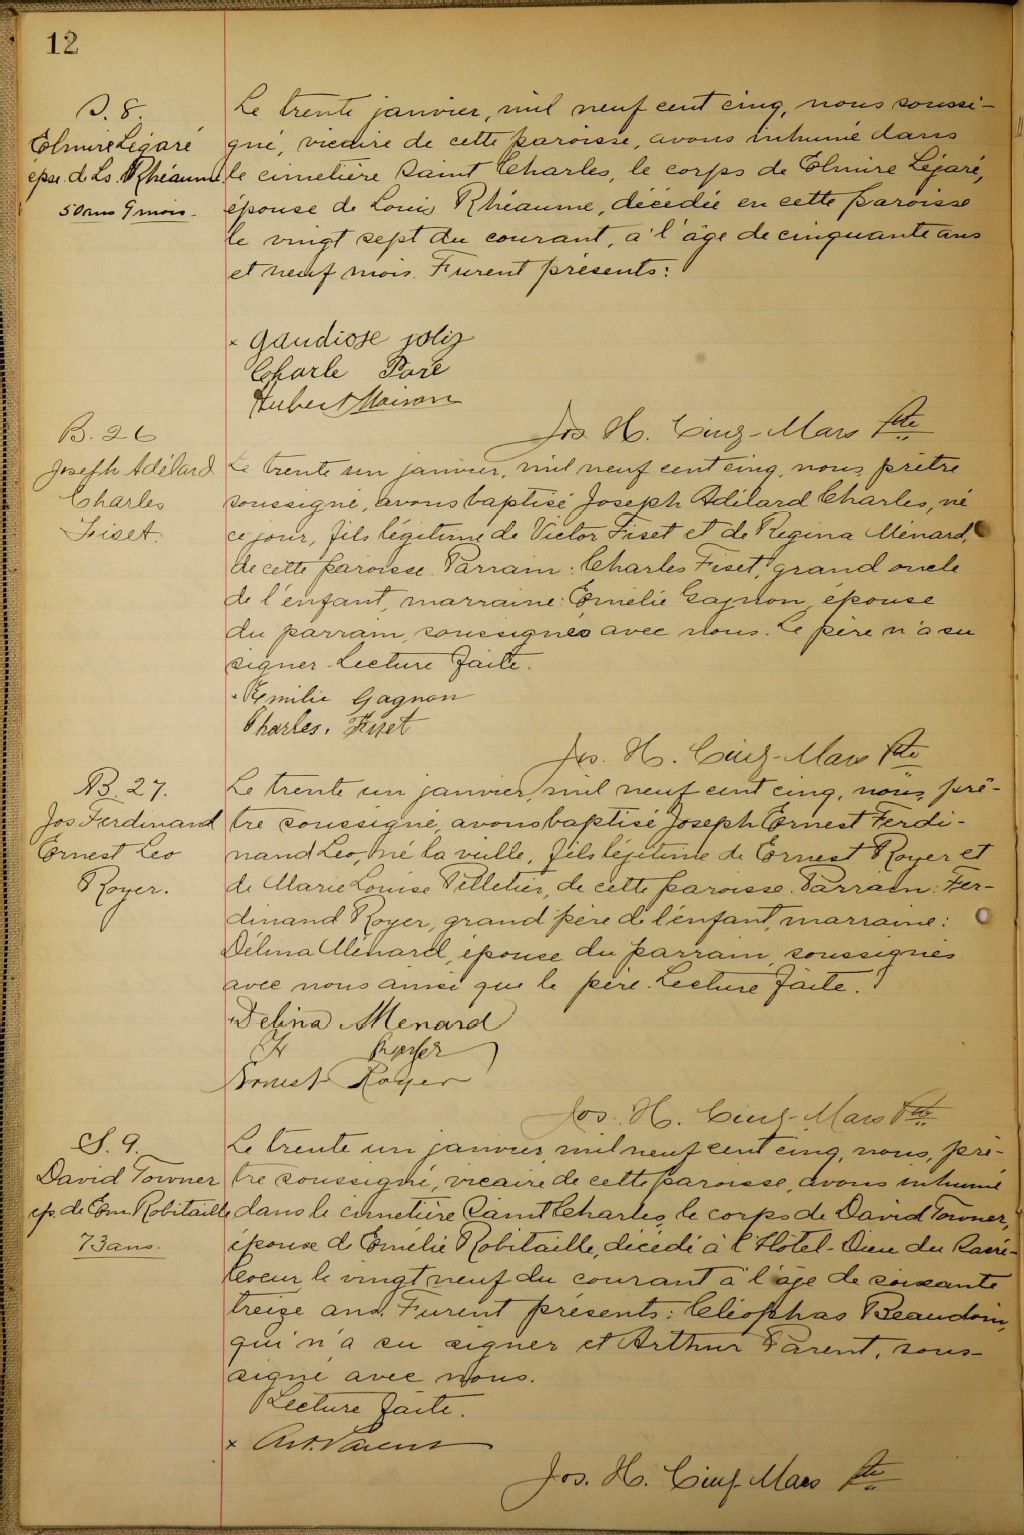 12
S. 8.
Elmire Légaré
épse. de Ls. Rhéaume
50 ans 9 mois.
Le trente janvier, mil neuf cent cinq, nous soussi-
gné, vicaire de cette paroisse, avons inhumé dans
le cimetière Saint Charles, le corps de Elmire Légaré,
épouse de Louis Rhéaume, décédée en cette paroisse
le vingt sept du courant, à l'âge de cinquante ans
et neuf mois. Furent présents:
x Gaudiose
Charle Paré
Hubert Moisan
Jos. H. Cinq-Mars Ptre
B. 26
Joseph Adélard
Charles
Fiset.
Le trente un janvier, mil neuf cent cinq, nous, prêtre
soussigné, avons baptisé Joseph Adélard Charles, né
ce jour, fils légitime de Victor Fiset et de Regina Ménard,
de cette paroisse. Parrain: Charles Fiset, grand oncle
de l'enfant, marraine: Emélie Gagnon, épouse
du parrain, soussignés avec nous. Le père n'a su
signer. Lecture faite.
Emilie Gagnon
Charles. Fiset
Jos. H. Cinq-Mars Ptre
B. 27.
Jos Ferdinand
Ernest Leo
Royer.
Le trente un janvier, mil neuf cent cinq, nous, prê-
tre soussigné, avons baptisé Joseph Ernest Ferdi-
nand Leo, né la veille, fils légitime de Ernest Royer et
de Marie Louise Pelletier, de cette paroisse. Parrain: Fer-
dinand Royer, grand père de l'enfant, marraine:
Délina Ménard, épouse du parrain, soussignés
avec nous ainsi que le père. Lecture faite.
Delina Menard
Royer
Ernest Royer
Jos. H. Cinq-Mars Ptre
S. 9.
David Towner
ép. de Em. Robitaille
73 ans.
Le trente un janvier, mil neuf cent cinq, nous, prê-
tre soussigné, vicaire de cette paroisse, avons inhumé
dans le cimetière Saint Charles, le corps de David Towner,
époux de Emelie Robitaille, décédé à l'Hôtel-Dieu du Sacré-
Coeur le vingt neuf du courant à l'âge de soixante
treize ans. Furent présents: Cléophas Beaudoin,
qui n'a su signer et Arthur Parent, sous-
signé avec nous.
Lecture faite.
x Art. Parent
Jos. H. Cinq Mars Ptre